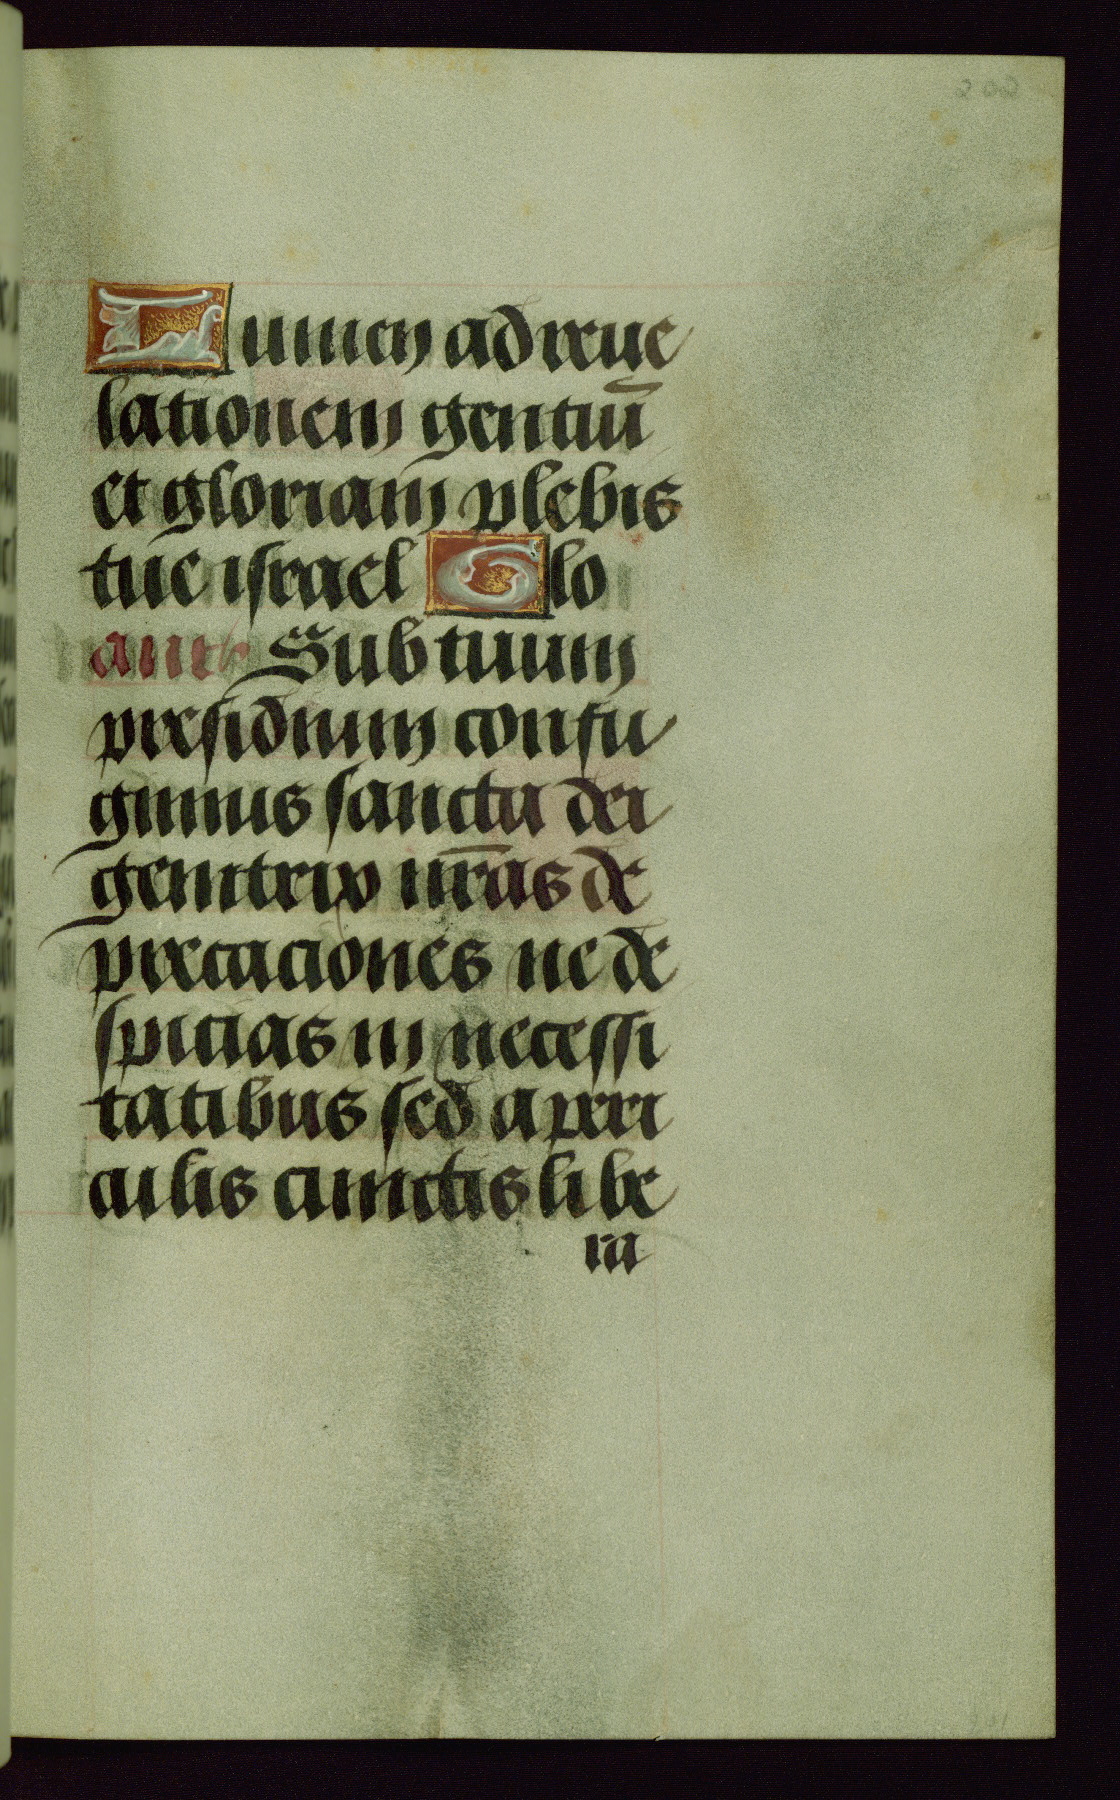 Lumen ad reue
lationem gentiū
et gloriam plebis
tue israel Glo
ant Sub tuum
presidium confu
gimus sancta dei
genitrix nr̄as de
precaciones ne de
spicias in necessi
tatibus sed a peri
culis cunctis libe
ra